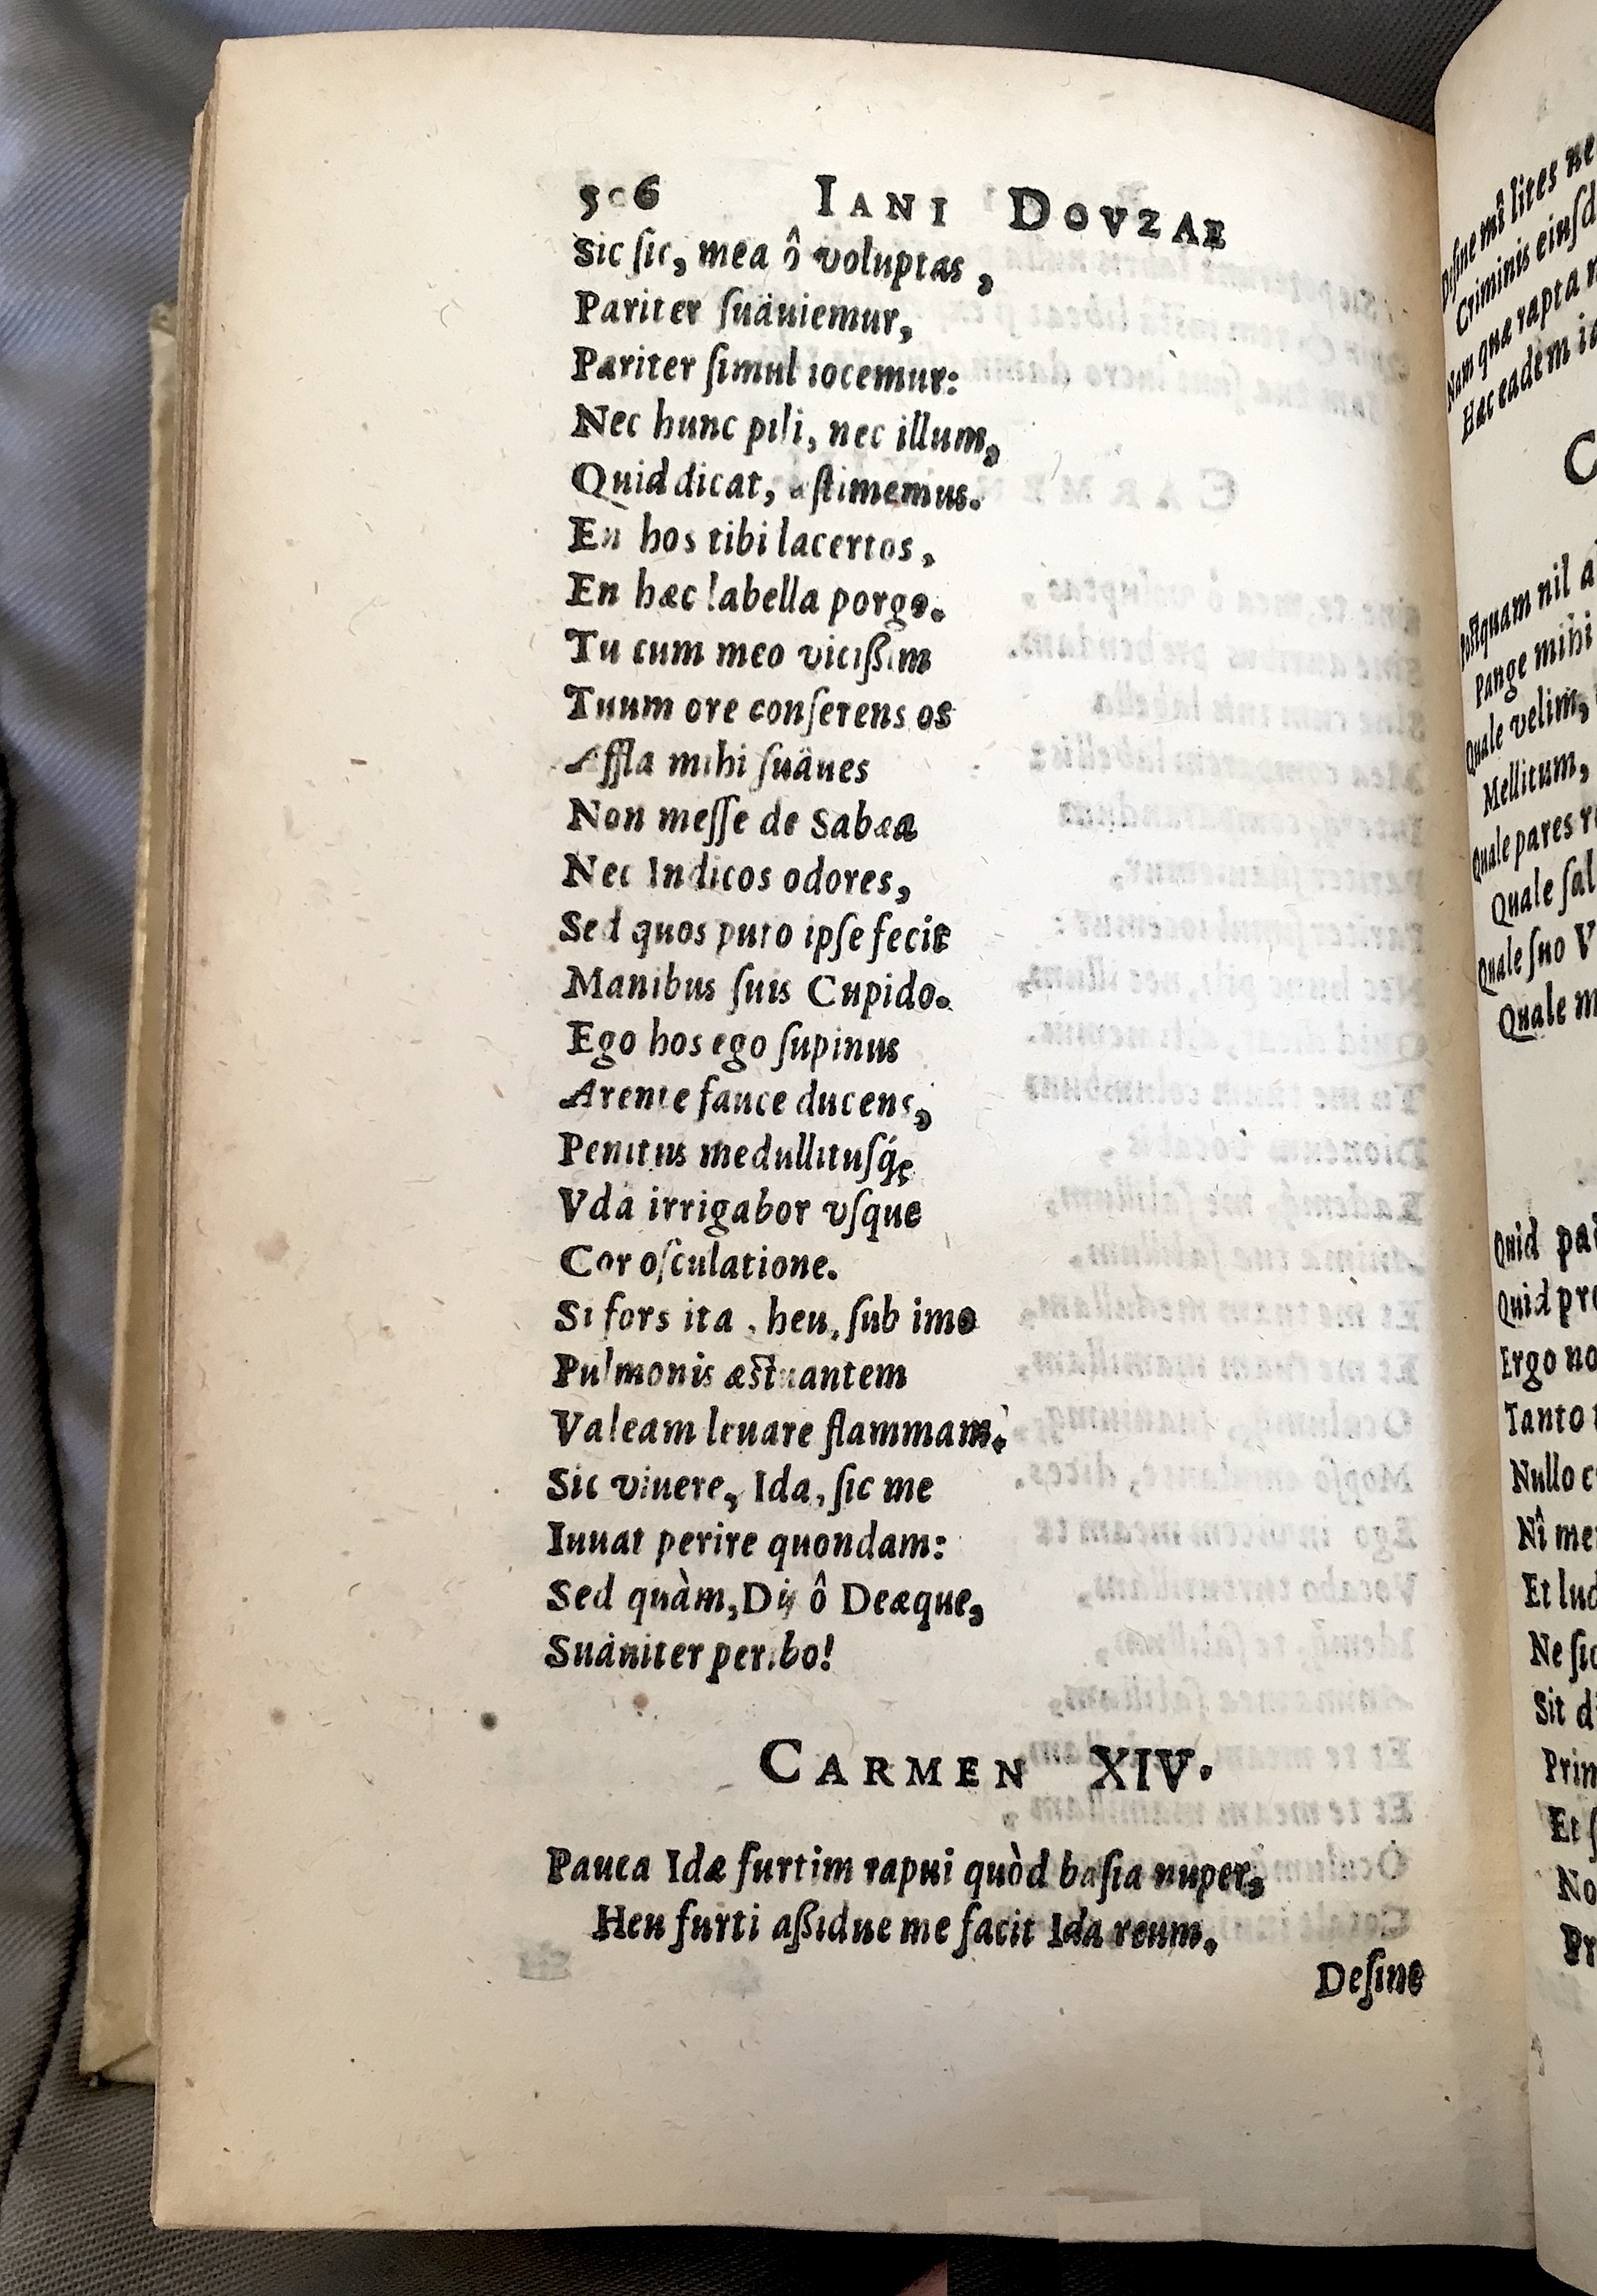 506 IANI DOVZAE
Sic ſic, mea ô voluptas,
Pariter ſuäuiemur,
Pariter ſimul iocemur:
Nec hunc pili, nec illum,
Quid dicat, æſtimemus.
En hos tibi lacertos,
En hæc labella porgo.
Tu cum meo vicißim
Tuum ore conſerens os
Affla mihi ſuäues
Non meſſe de Sabæa
Nec Indicos odores,
Sed quos puto ipſe fecit
Manibus ſuis Cupido.
Ego hos ego ſupinus
Arente fauce ducens,
Penitus medullituſq́;
Vda irrigabor vſque
Cor oſculatione.
Si fors ita, heu, ſub imo
Pulmonis æstuantem
Valeam leuare flammam.
Sic viuere, Ida, ſic me
Iuuat perire quondam:
Sed quàm, Dij ô Deæque,
Suäuiter peribo!
CARMEN XIV.
Pauca Idæ furtim rapui quòd baſia nuper,
Heu furti aßidue me facit Ida reum.
Deſine
Deſine mî lites ne
Criminis eiuſd
Nam quæ rapta
Hæc eadem
C
Poſtquam nil a
Pange mihi
Quale velim,
Mellitum,
Quale pares
Quale ſal
Quale ſuo V
Quale m
Quid
Quid
Ergo no
Tanto
Nullo
Nî
Et
Ne
Sit
Et